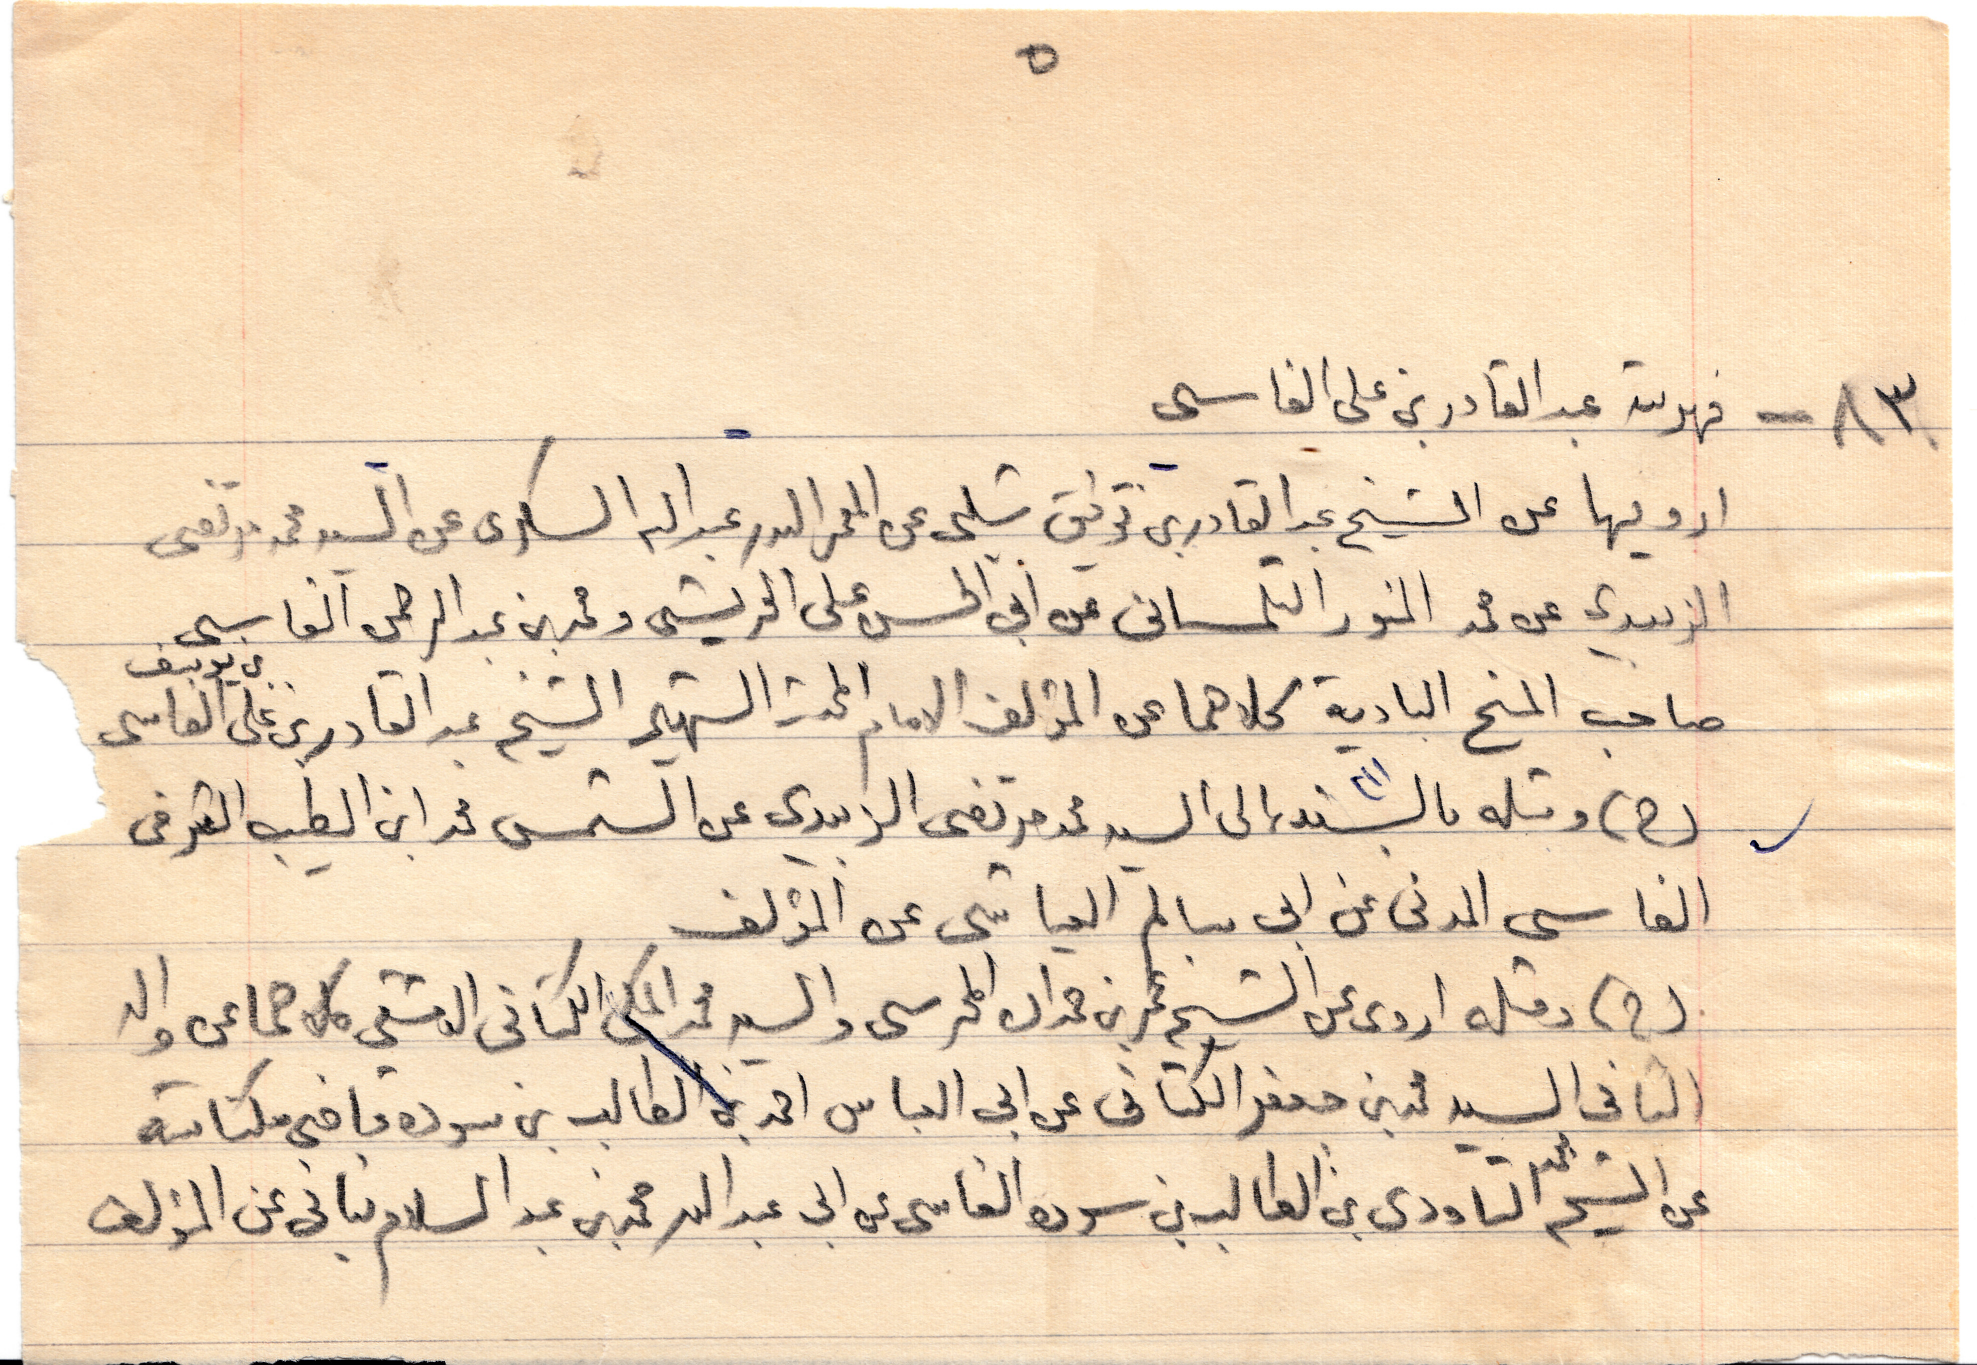 ٥
٨٣ - فهرسة عبد القادر بن علي الفاسي
ارويها عن الشيخ عبد القادر بن توفيق شلبي عن المعمر البدر عبد الله السكري عن السيد محمد مرتضى
الزبيدي عن محمد المنور التلمساني عن أبي الحسن علي الحريشي ومحمد بن عبد الرحمن الفاسي
صاحب المنح البادية كلاهما عن المؤلف الامام المحدث الشهير الشيخ عبد القادر بن علي بن يوسف الفاسي
(ح) ومثله بالسند الى السيد محمد مرتضى الزبيدي عن الشمس محمد ابن الطيب الشرفي
الفاسي المدني عن ابي سالم العياشي عن المؤلف
(ح) ومثله اروى عن الشيخ عمر بن حمدان المحرسي والسيد محمد المكي الكتاني الدمشقي كلاهما عن والد
الثاني السيد محمد بن جعفر الكتاني عن ابي العباس احمد بن الطالب بن سوده قاضي مكناسة
عن الشيخ محمد التاودي بن الطالب بن سوده الفاسي عن ابي عبد الله محمد بن عبد السلام بناني عن المؤلف